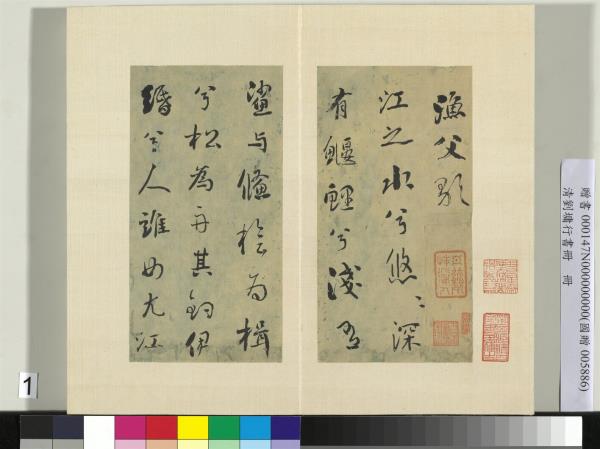 漁父歌
江之水兮悠〻深
有鰋鯉兮淺有
鯊与鯈桧为楫
兮松為舟其釣伊
緡兮人誰如尤江
贈書 000147N000000000(國贈 005886)
清劉墉行書冊 冊
1